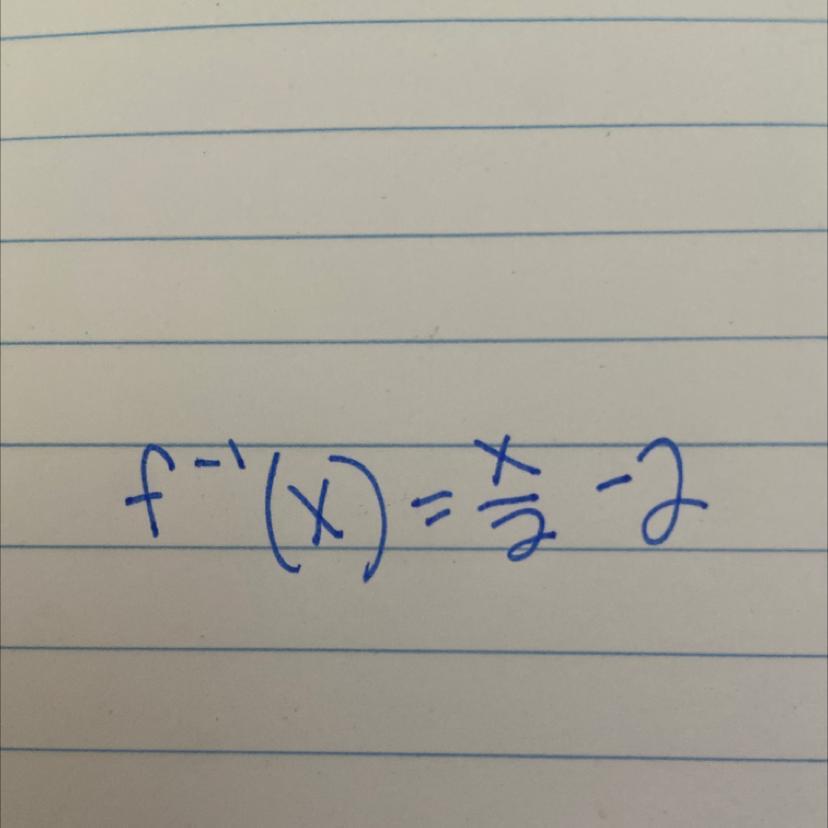 f⁻¹(x) = x/2 - 2